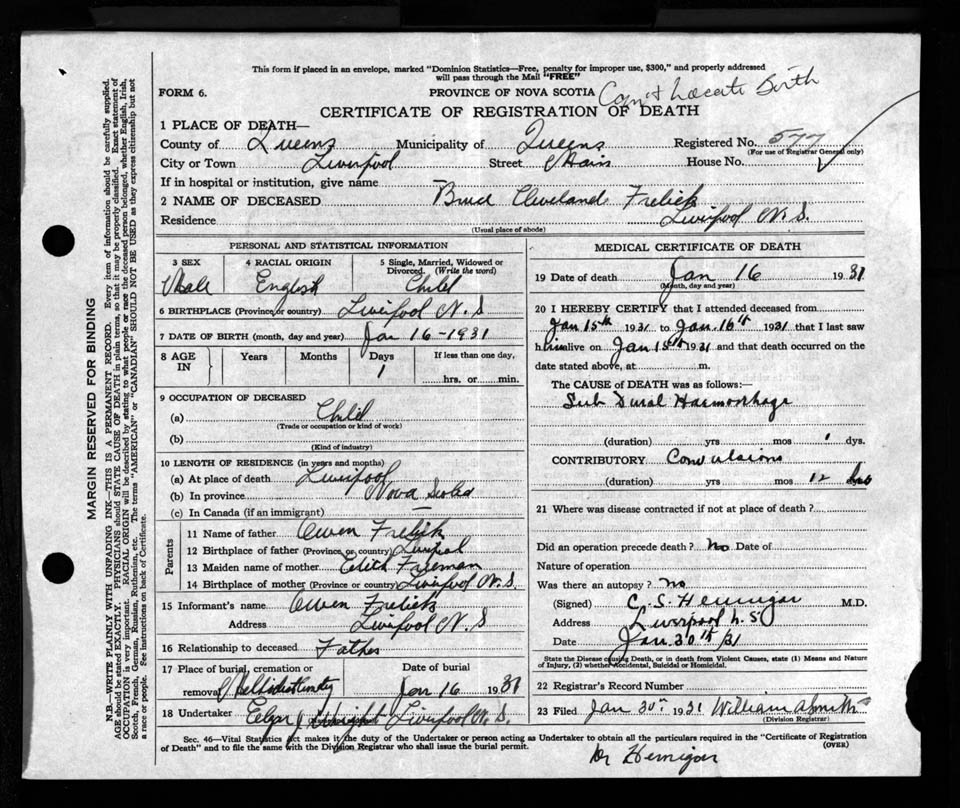 This form if placed in an envelope, marked "Dominion Statistics—Free, penalty for improper use, $300," and properly addressed
will pass through the Mail "FREE"
FORM 6.
PROVINCE OF NOVA SCOTIA
Can't Locate Birth
CERTIFICATE OF REGISTRATION OF DEATH
1 PLACE OF DEATH—
County of Queens Municipality of Queens Registered No. 577
(For use of Registrar General only)
City or Town Liverpool Street Main House No.
If in hospital or institution, give name
2 NAME OF DECEASED Cleveland Frelick
Residence Liverpool N.S.
(Usual place of abode)
PERSONAL AND STATISTICAL INFORMATION
3 SEX 4 RACIAL ORIGIN 5 Single, Married, Widowed or
Divorced. (Write the word)
Male English Child
6 BIRTHPLACE (Province or country) Liverpool N.S
7 DATE OF BIRTH (month, day and year) Jan 16-1931
8 AGE IN Years Months Days If less than one day,
1 hrs. or min.
9 OCCUPATION OF DECEASED
(a) Child
(Trade or occupation or kind of work)
(b)
(Kind of industry)
10 LENGTH OF RESIDENCE (in years and months)
(a) At place of death Liverpool
(b) In province Nova Scotia
(c) In Canada (if an immigrant) —
Parents
11 Name of father Owen Frelick
12 Birthplace of father (Province or country) Liverpool
13 Maiden name of mother Edith Freeman
14 Birthplace of mother (Province or country) Liverpool N.S.
15 Informant's name Owen Frelick
Address Liverpool N.S
16 Relationship to deceased Father
17 Place of burial, cremation or Date of burial
removal Jan 16 1931
18 Undertaker Liverpool N.S.
MEDICAL CERTIFICATE OF DEATH
19 Date of death Jan 16 1931
(Month, day and year)
20 I HEREBY CERTIFY that I attended deceased from
Jan 15th 1931 to Jan. 16th 1931 that I last saw
him alive on Jan 15th 1931 and that death occurred on the
date stated above, at m.
The CAUSE OF DEATH was as follows:—
Sub Dural Haemorrhage
(duration) yrs mos 1 dys.
CONTRIBUTORY Convulsions
(duration) yrs mos 12 hrs
21 Where was disease contracted if not at place of death?
Did an operation precede death? No Date of
Nature of operation
Was there an autopsy? No
(Signed) C. S. Hennigar M.D.
Address Liverpool N.S.
Date Jan. 30th/31
State the Disease causing Death, or in death from Violent Causes, state (1) Means and Nature
of Injury, (2) whether Accidental, Suicidal or Homicidal.
22 Registrar's Record Number
23 Filed Jan 30th 1931 William A Smith
(Division Registrar)
Sec. 46—Vital Statistics Act makes it the duty of the Undertaker or person acting as Undertaker to obtain all the particulars required in the "Certificate of Registration
of Death" and to file the same with the Division Registrar who shall issue the burial permit.
(OVER)
Dr Hennigar
MARGIN RESERVED FOR BINDING
N.B.—WRITE PLAINLY WITH UNFADING INK—THIS IS A PERMANENT RECORD. Every item of information should be carefully supplied.
AGE should be stated EXACTLY. PHYSICIANS should STATE CAUSE OF DEATH in plain terms, so that it may be properly classified. Exact statement of
OCCUPATION is very important. RACIAL ORIGIN will be described by stating to what people or race the deceased person belonged, whether English, Irish,
Scotch, French, German, Russian, Ruthenian, etc. The terms "AMERICAN" or "CANADIAN" SHOULD NOT BE USED as they express citizenship but not
a race or people. See instructions on back of Certificate.